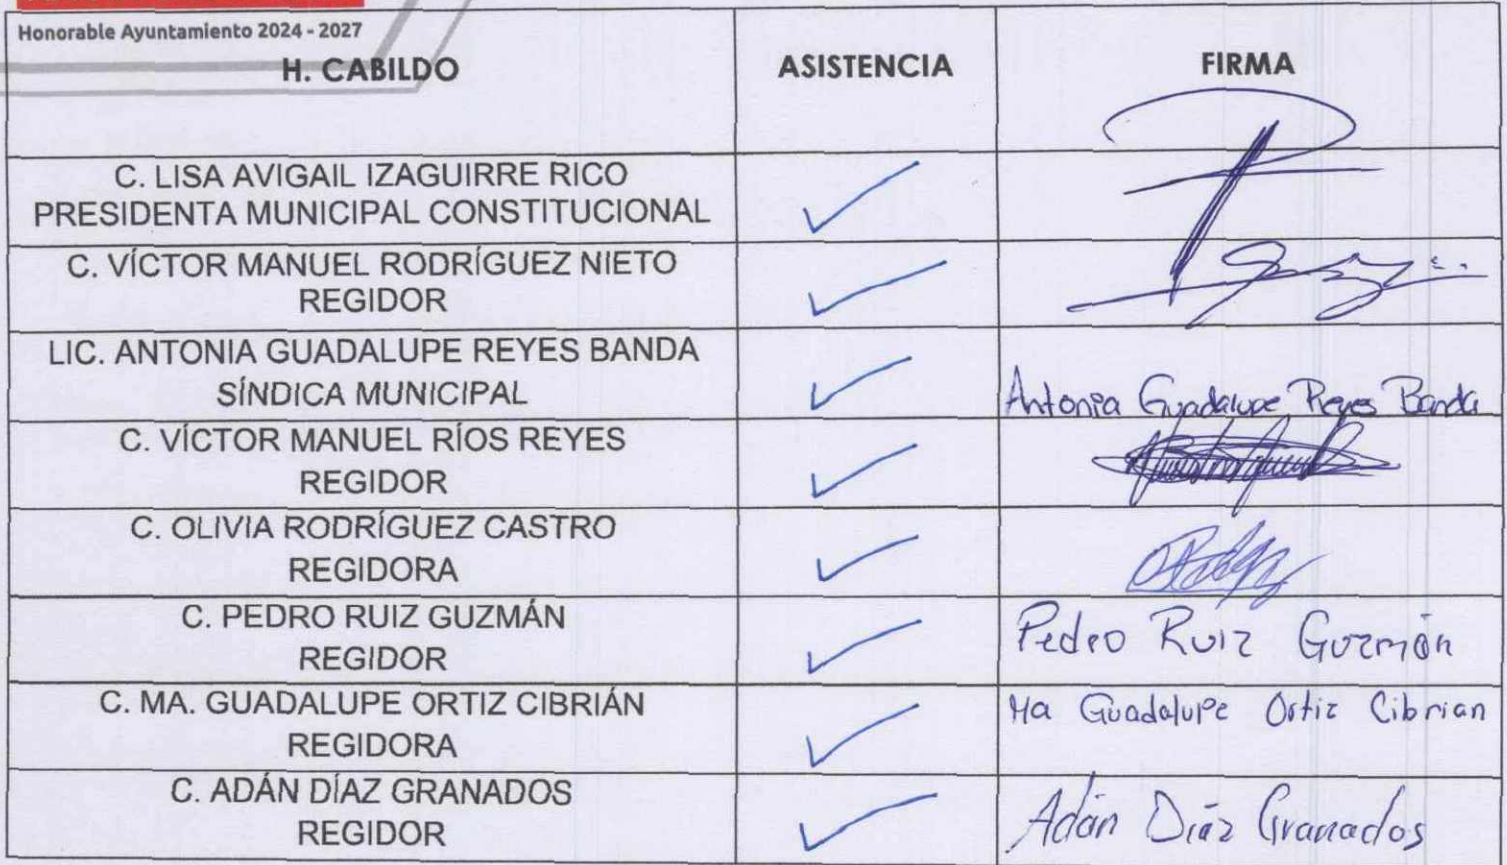 Honorable Ayuntamiento 2024 - 2027
H. CABILDO ASISTENCIA FIRMA
C. LISA AVIGAIL IZAGUIRRE RICO
PRESIDENTA MUNICIPAL CONSTITUCIONAL
C. VÍCTOR MANUEL RODRÍGUEZ NIETO
REGIDOR
LIC. ANTONIA GUADALUPE REYES BANDA
SÍNDICA MUNICIPAL
Antonia Guadalupe Reyes Banda
C. VÍCTOR MANUEL RÍOS REYES
REGIDOR
C. OLIVIA RODRÍGUEZ CASTRO
REGIDORA
C. PEDRO RUIZ GUZMÁN
REGIDOR
Pedro Ruiz Guzmán
C. MA. GUADALUPE ORTIZ CIBRIÁN
REGIDORA
Ma Guadalupe Ortiz Cibrian
C. ADÁN DÍAZ GRANADOS
REGIDOR
Adán Díaz Granados